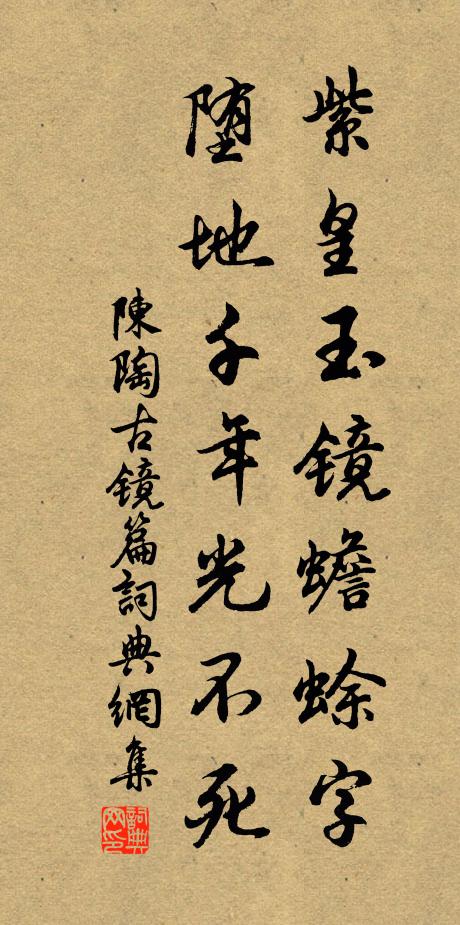 紫皇玉镜蟾蜍字
堕地千年光不死
陳陶古镜篇詞典網集
詞典网印